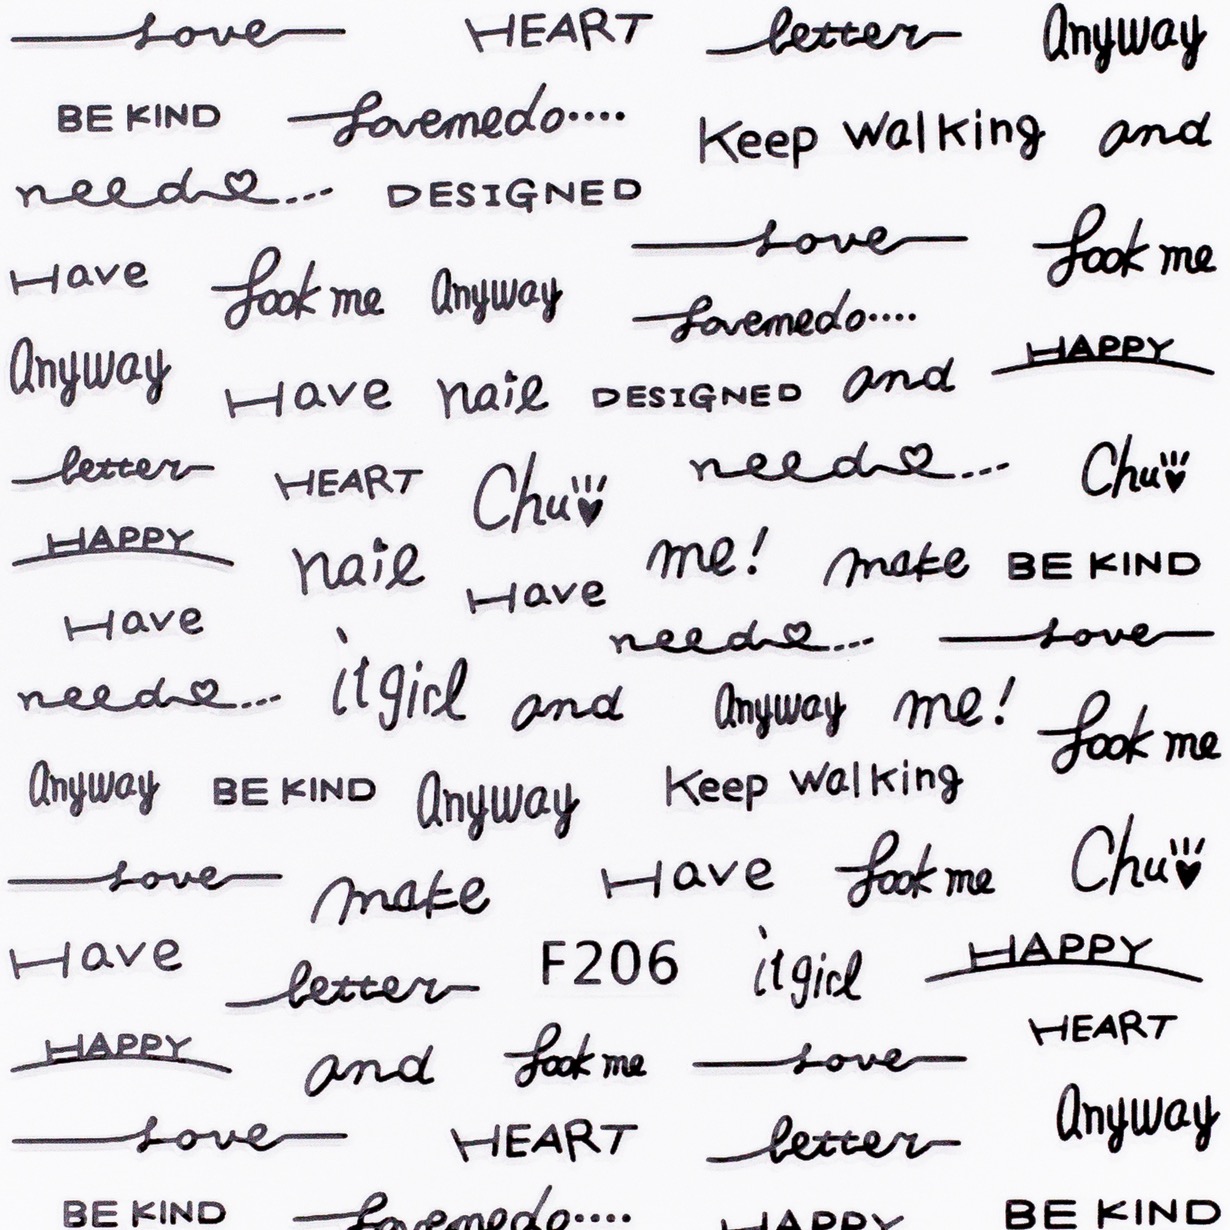 love HEART letter Anyway
BE KIND lovemedo.... Keep walking and
need... DESIGNED
love look me
Have look me Anyway
lovemedo.... HAPPY
Anyway Have nail DESIGNED and
letter HEART Chu need... Chu
HAPPY nail me! make BE KIND
Have Have need... love
need... it girl and Anyway me! look me
Anyway BE KIND Anyway Keep walking
love make Have look me Chu
Have letter F206 it girl HAPPY
HEART
HAPPY and look me love
Anyway
love HEART letter
BE KIND lovemedo.... HAPPY BE KIND